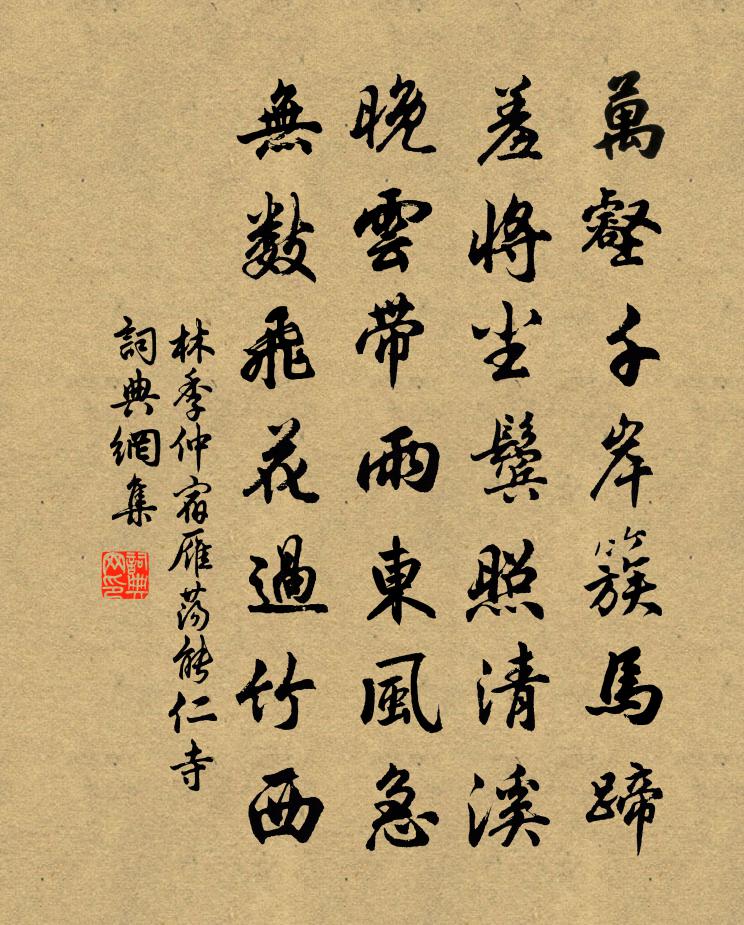 萬壑千岸簇馬蹄
羞將尘鬢照清溪
晚雲帶雨東風急
無数飛花過竹西
林季仲宿雁蕩能仁寺
詞典網集
詞典網印